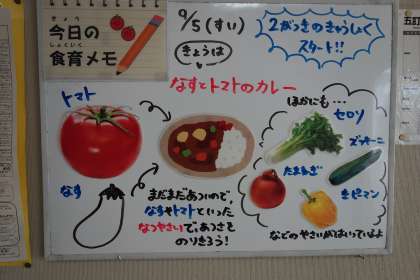 きょう
今日の
しょくいく
食育メモ
9/5(すい)
きょうは
2がっきのきゅうしょく
スタート!!
なすとトマトのカレー
トマト
なす
まだまだあついので、
なすやトマトといった
なつやさいで、あつさを
のりきろう!
ほかにも…
セロリ
ズッキーニ
たまねぎ
きピーマン
などのやさいがはいっているよ